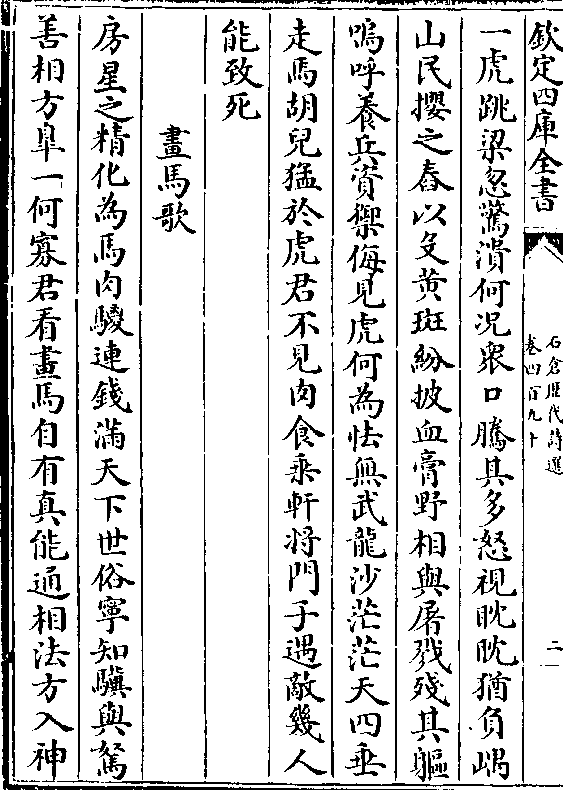 欽定四庫全書
石倉歷代詩選
卷四百九十
二
一虎跳梁忽驚潰何况衆口騰其多怒視眈眈猶負嵎
山民攖之舂以殳黄斑紛披血膏野相與屠戮殘其軀
嗚呼養兵資禦侮見虎何為怯無武龍沙茫茫天四垂
走馬胡兒猛於虎君不見肉食乘軒将門子遇敵幾人
能致死
畫馬歌
房星之精化為馬肉騣連錢滿天下世俗寧知驥與駑
善相方臯一何寡君看畫馬自有真能通相法方入神